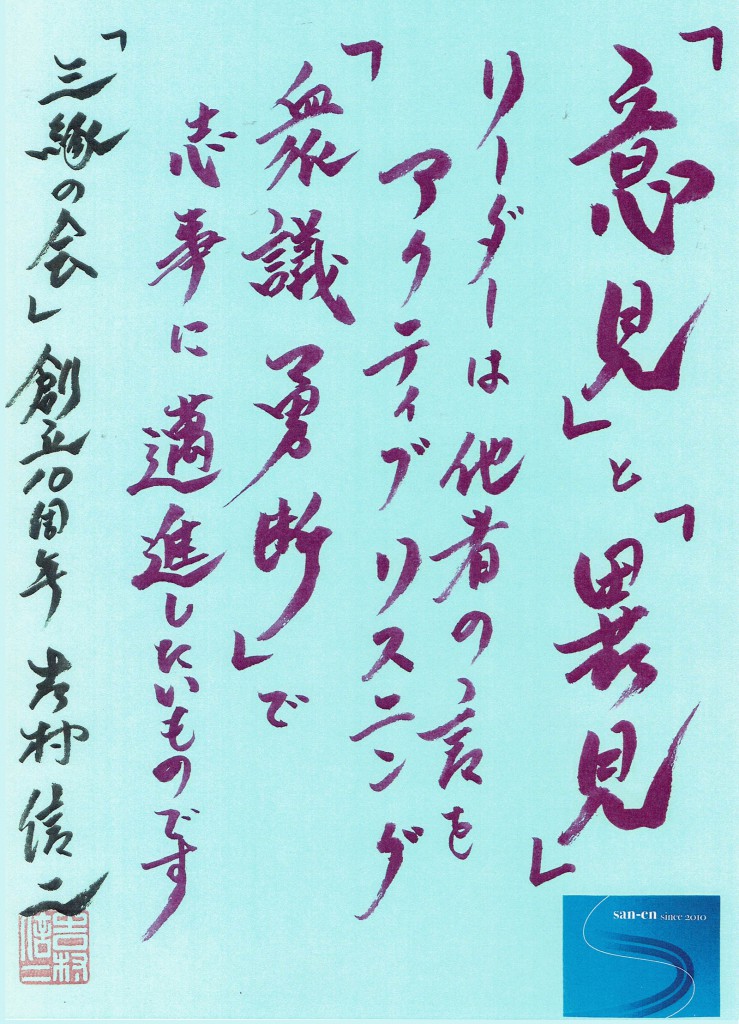 「意見」と「異見」
リーダーは他者の言を
アクティブリスニング
「衆議勇断」で
志事に邁進したいものです
「三縁の会」創立10周年 吉村信二
吉村
信二
san-en since 2010